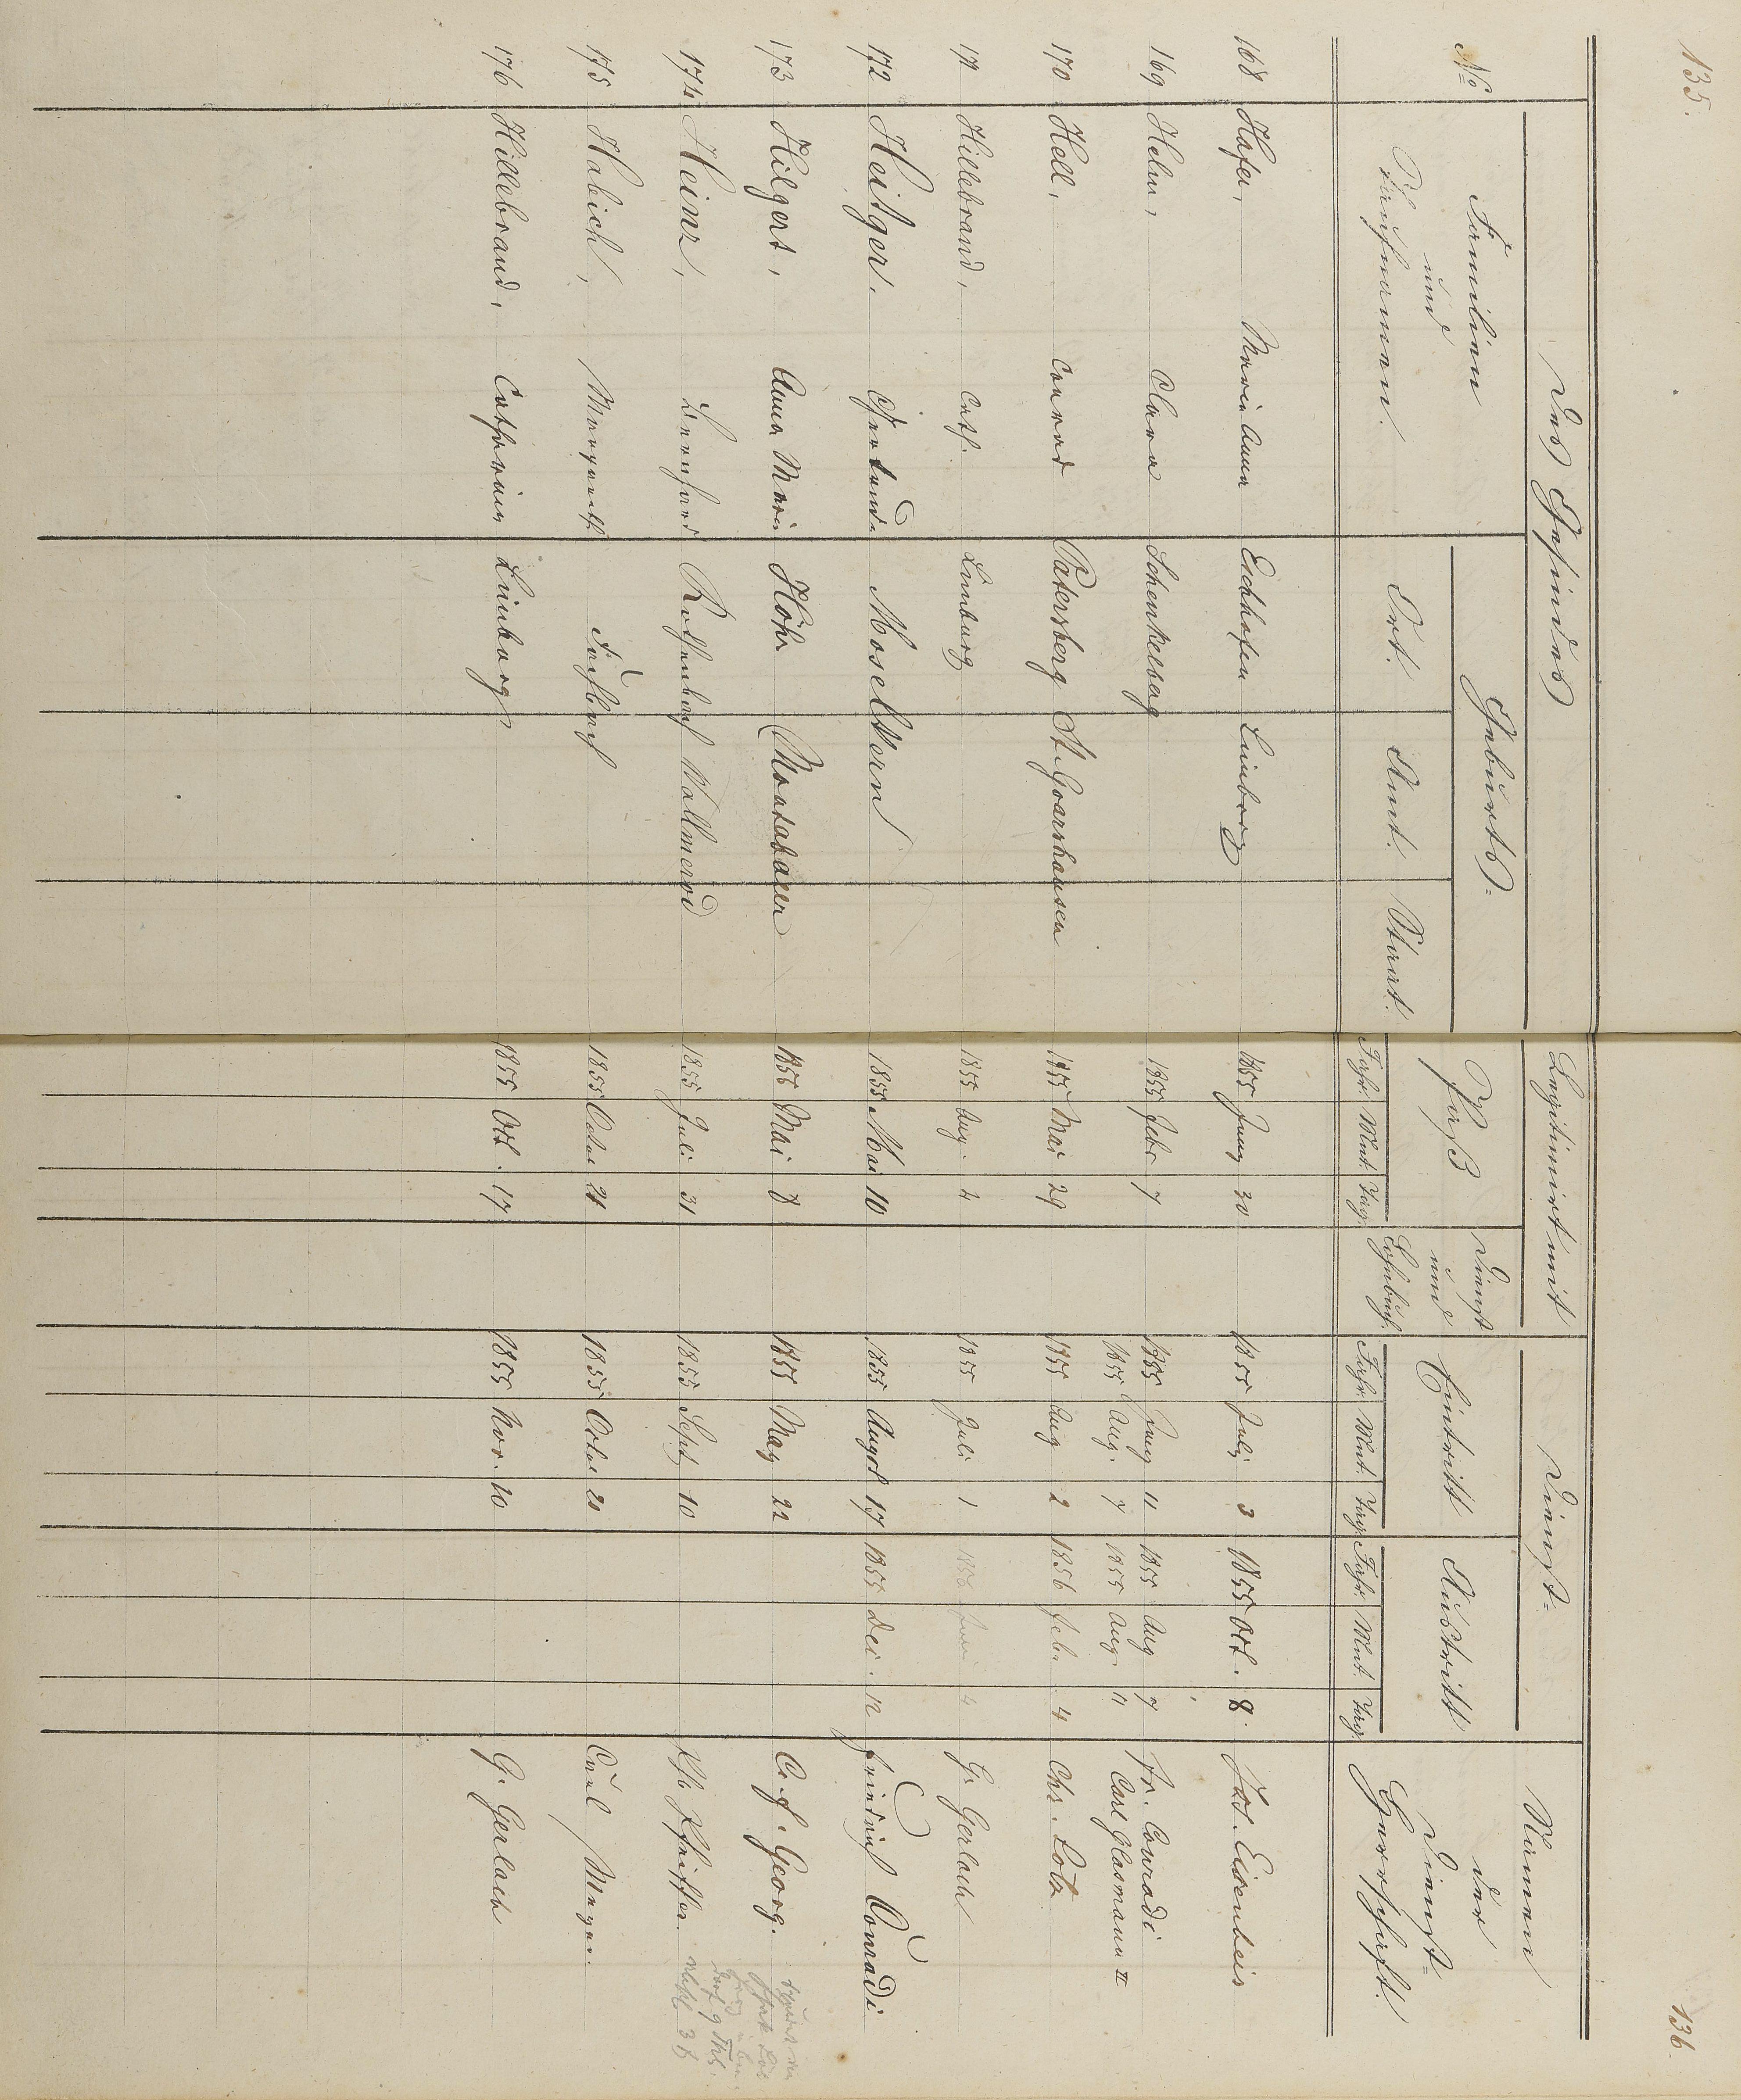 135.
136.
Des Gesindes
Legitimirt mit
Dienst-
Namen der Dienst-Herrschaft.
No
Familien und Taufnamen.
Geburts-
Ort.
Amt.
Staat.
Paß
Dienst und Lohnbuch.
Eintritt
Austritt
Jahr. Mnt. Tag.
Jahr. Mnt. Tag.
Jahr. Mnt. Tag.
168 Hafer, Maria Anna Eschhofen Limburg 1855 Juny 30 1855 July 3 1855 Oct. 8. Jos. Eisenbeis
169 Helm, Clara Schenkelberg 1855 Febr 7 1855 Juny 11 1855 Aug 7 Fr. Conradi
1855 Aug. 7 1855 Aug. 11 Carl Glasmann II
170 Hell, Conrad Patersberg St. Goarshausen 1855 Mai 29 1855 Aug 2 1856 Feb. 4 Chr. Lotz
171 Hillebrand, Cath. Limburg 1855 Aug. 4 1855 Juli 1 1856 Juni 4 G. Gerlach
172 Heitger. Ferdinand. Moselkern 1855 Mai 10 1855 Augst 17 1855 Dec. 12 Friedrich Conradi
173 Hilgert, Anna Maria Höhr Montabaur 1855 Mai 8 1855 May 22 C. f. Georg.
174 Heinz, Bernhard Rothenbach Wallmerod 1855 Juli 31 1855 Sept 10 Pfeiffer.
175 Habich, Margareth. Fussbach 1855 Octbr 21 1855 Octbr 20 Carl Mayer.
176 Hillebrand, Catharina Limburg 1855 Oct. 17 1855 Nov. 10 G. Gerlach